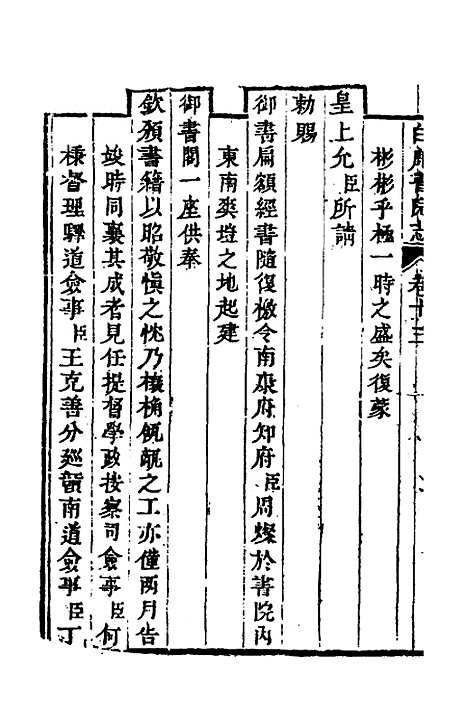 白鹿書院志 卷十三
彬彬乎極一時之盛矣復蒙
皇上允臣所請
勅賜
御書扁額經書隨復檄令南康府知府臣周燦於書院內
東南爽塏之地起建
御書閣一座供奉
欽頒書籍以昭敬慎之忱乃榱桷瓴甋之工亦僅兩月告
竣時同襄其成者見任提督學政按察司僉事臣何
棅督理驛道僉事臣王克善分廵贑南道僉事臣丁